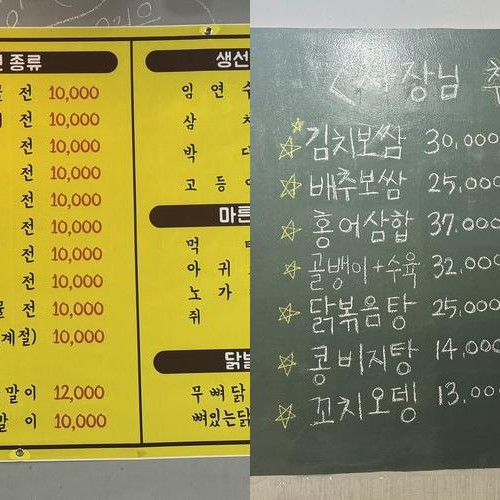 전 종류
전 10,000
전 10,000
전 10,000
전 10,000
전 10,000
전 10,000
전 10,000
전 10,000
물 전 10,000
계절) 10,000
말이 12,000
말이 10,000
생선
임 연 수
삼 치
박 대
고 등 어
마른
먹 태
아 귀
노 가
쥐
닭발
무뼈닭
뼈있는닭
<사장님 추
김치보쌈 30,000
배추보쌈 25,000
홍어삼합 37,000
골뱅이+수육 32,000
닭볶음탕 25,000
콩비지탕 14,000
꼬치오뎅 13,000